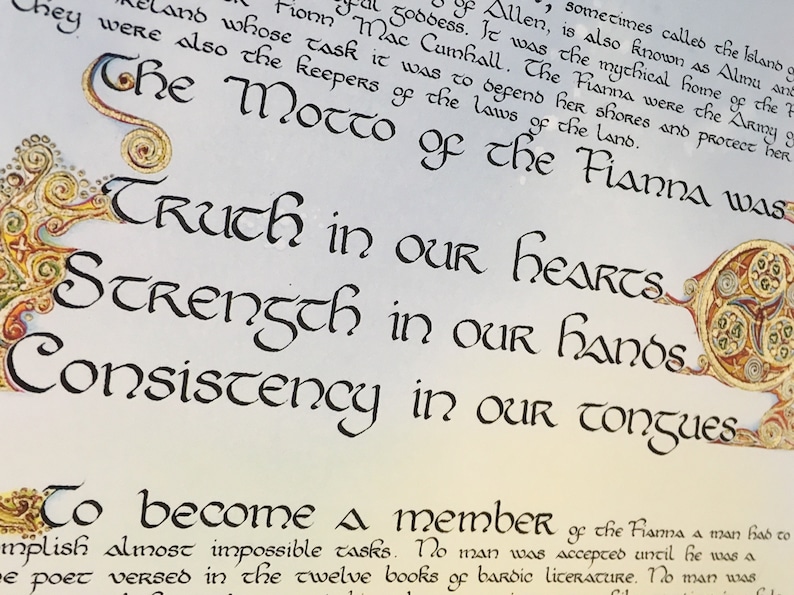 of Allen, is also known as Almu and
sometimes called the Island of
goddess. It was the mythical home of the
Ireland whose task it was to defend her shores and protect her
Fionn Mac Cumhall. The Fianna were the Army of
They were also the keepers of the laws of the land.
The Motto of the Fianna was
Truth in our hearts
Strength in our hands
Consistency in our tongues
To become a member of the Fianna a man had to
almost impossible tasks. No man was accepted until he was a
poet versed in the twelve books of bardic literature. No man was